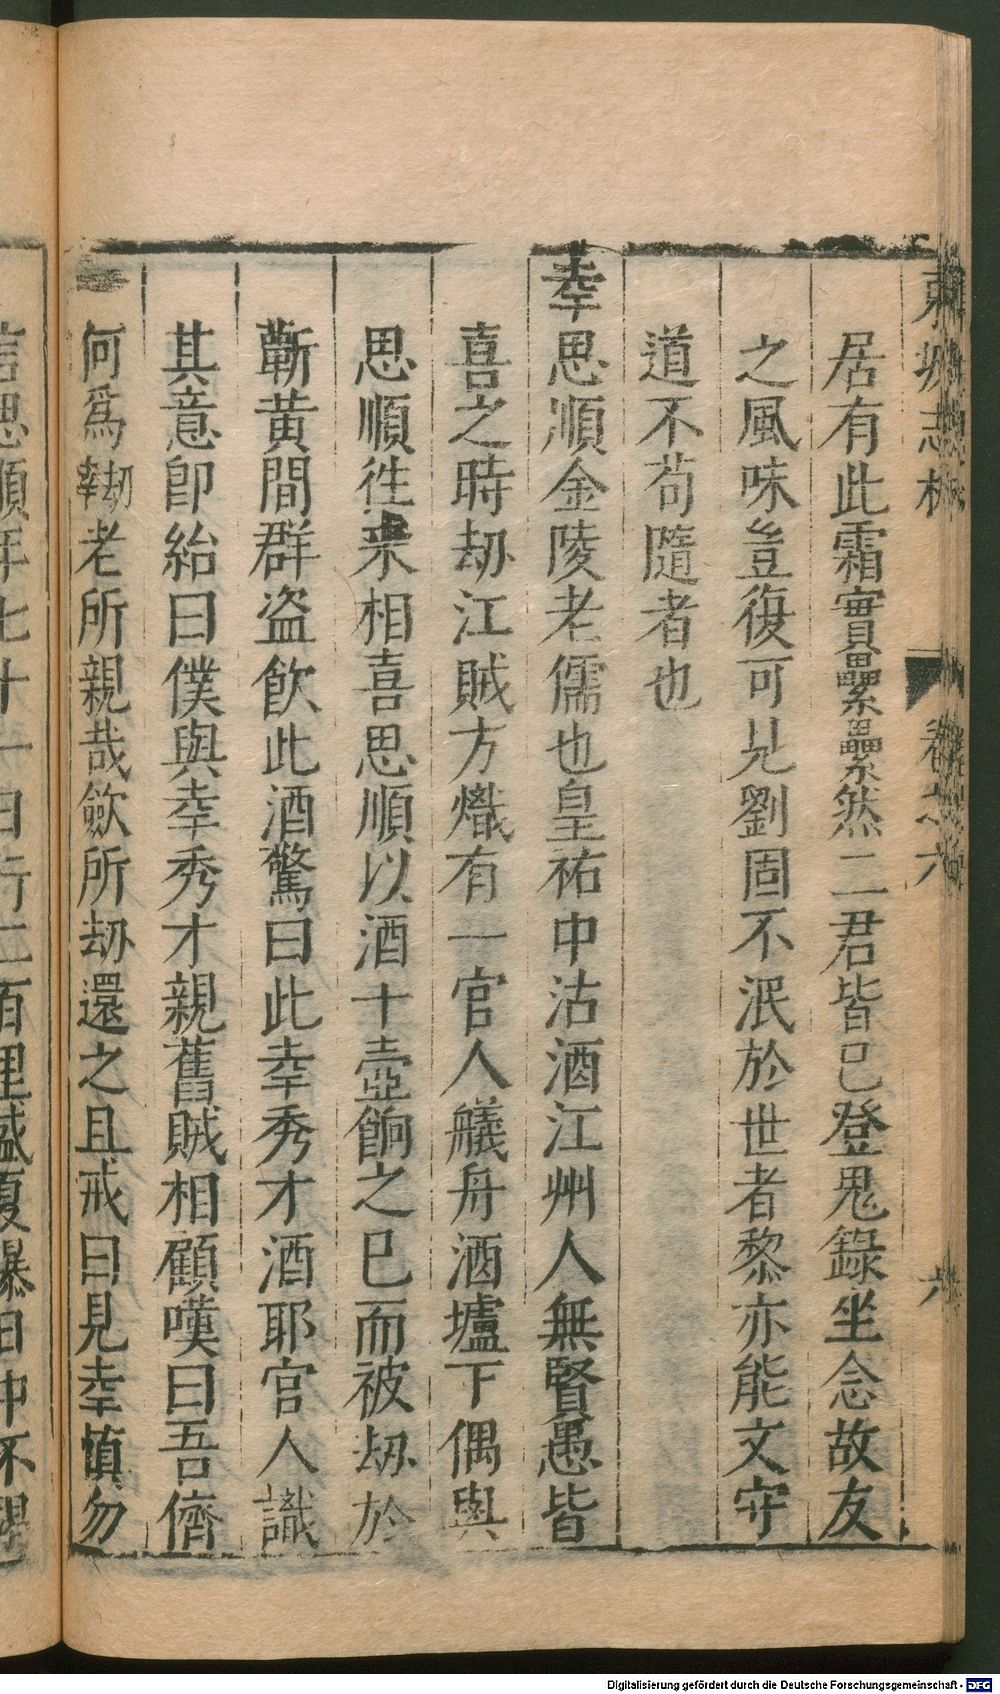 東坡志林 卷之六 六
居有此霜實纍纍然二君皆已登鬼錄坐念故友
之風味豈復可見劉固不泯於世者黎亦能文守
道不苟隨者也
幸思順金陵老儒也皇祐中沽酒江州人無賢愚皆
喜之時劫江賊方熾有一官人艤舟酒壚下偶與
思順徃來相喜思順以酒十壺餉之已而被劫於
蘄黃間群盜飲此酒驚曰此幸秀才酒耶官人識
其意卽紿曰僕與幸秀才親舊賊相顧嘆曰吾儕
何爲刼老所親哉歛所劫還之且戒曰見幸愼勿
言思順年七十一日行二百里盛夏曝日中不渴
Digitalisierung gefördert durch die Deutsche Forschungsgemeinschaft - DFG